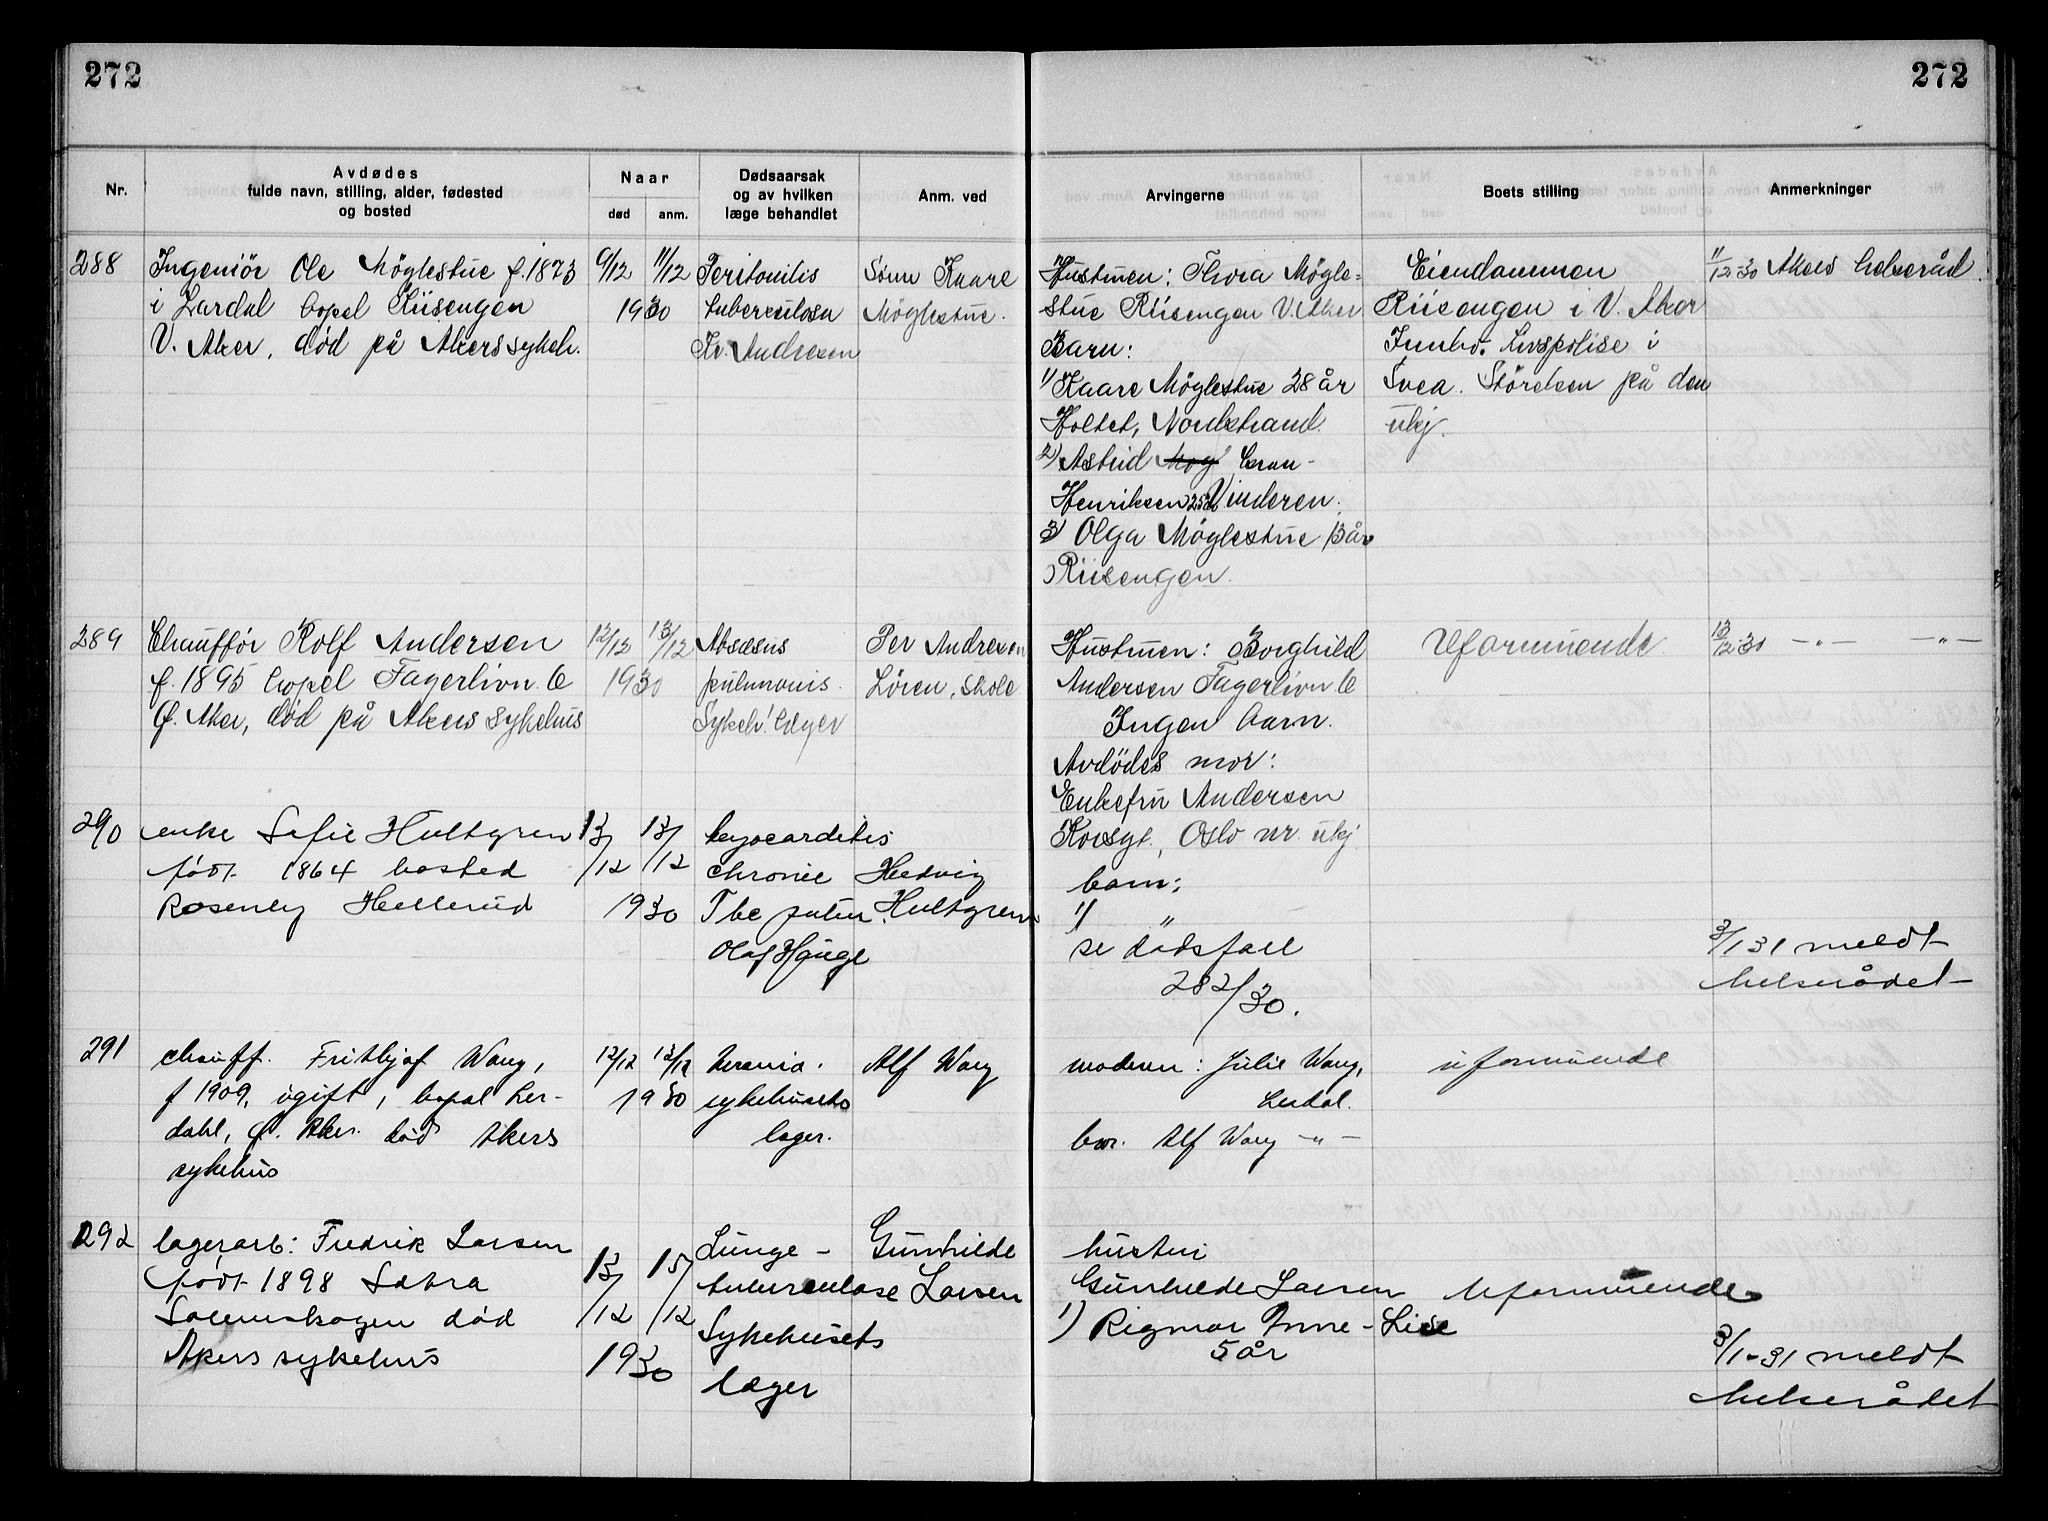 272
272
Nr.
Avdødes
fulde navn, stilling, alder, fødested
og bosted
Naar
død
anm.
Dødsaarsak
og av hvilken
læge behandlet
Anm. ved
Arvingerne
Boets stilling
Anmerkninger
288
Ingeniör Ole Möglestue f. 1873
i Lardal bopel Riisengen
V. Aker, död på Akers sykeh.
6/12 11/12
1930
Peritonitis
tuberculosa
Fr. Andresen
Sönn Kaare
Möglestue.
Hustruen: Thora Mögle-
stue Riisengen V. Aker
Barn:
1) Kaare Möglestue 28 år
Holtet, Nordstrand.
2) Astrid
Henriksen 25 år Vinderen.
3) Olga Möglestue 13 år
Riisengen.
Eiendommen
Riisengen i V. Aker
Innbo. Livspolise i
Svea. Störelsen på den
ukj.
11/12-30 Akers helseråd.
289
Chauffør Rolf Andersen
f. 1895 bopel Fagerlivn. 6
Ø. Aker, død på Akers sykehus
12/12 13/12
1930
Absesus
pulmonis.
Sykeh. læger
Per Andresen
Lören, skole
Hustruen: Borghild
Andersen Fagerlivn. 6
Ingen barn.
Avdödes mor:
Enkefru Andersen
Korsgt., Oslo nr. ukj.
Uformuende
13/12-30 —"— —"—
290
enke Sofie Hultgren
født 1864 bosted
Rosenly Hellerud
13/12 13/12
1930
myocarditis
chronic
Tbc pulm.
Olaf Hauge
Hedvig
Hultgren
barn:
1) "
se dødsfall
282/30.
3/1 31 meldt
helserådet
291
chauff. Frithjof Wang,
f 1909, ugift, bopal Ler-
dahl, Ø. Aker. død Akers
sykehus
12/12 13/12
1930
Uremia.
sykehusets
læger.
Alf Wang
moderen: Julie Wang,
Lerdal.
bror. Alf Wang —"—
uformuende
292
lagerarb: Fredrik Larsen
født 1898 Sætra
Solemskogen død
Akers sykehus
13/12 15/12
1930
Lunge-
tuberculose
Sykehusets
læger
Gunhilde
Larsen
hustru
Gunhilde Larsen
1) Rigmor Anne-Lise
5 år
Uformuende
3/1-31 meldt
helserådet